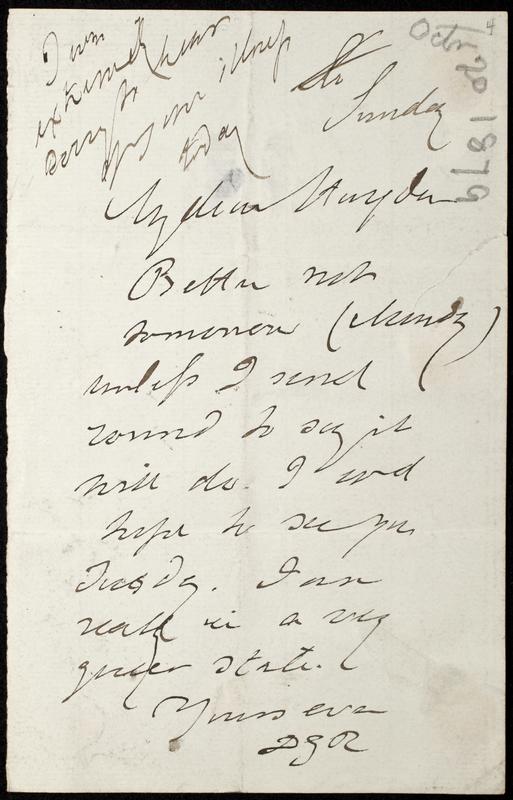 Octr 4
1879
Sunday
My dear
Better not
tomorrow (Monday)
unless I send
round to say it
will do. I wd
hope to see you
Tuesday. I am
really in a very
queer state.
Yours ever
DGR
I am
extremely
sorry to hear
you are illish
today